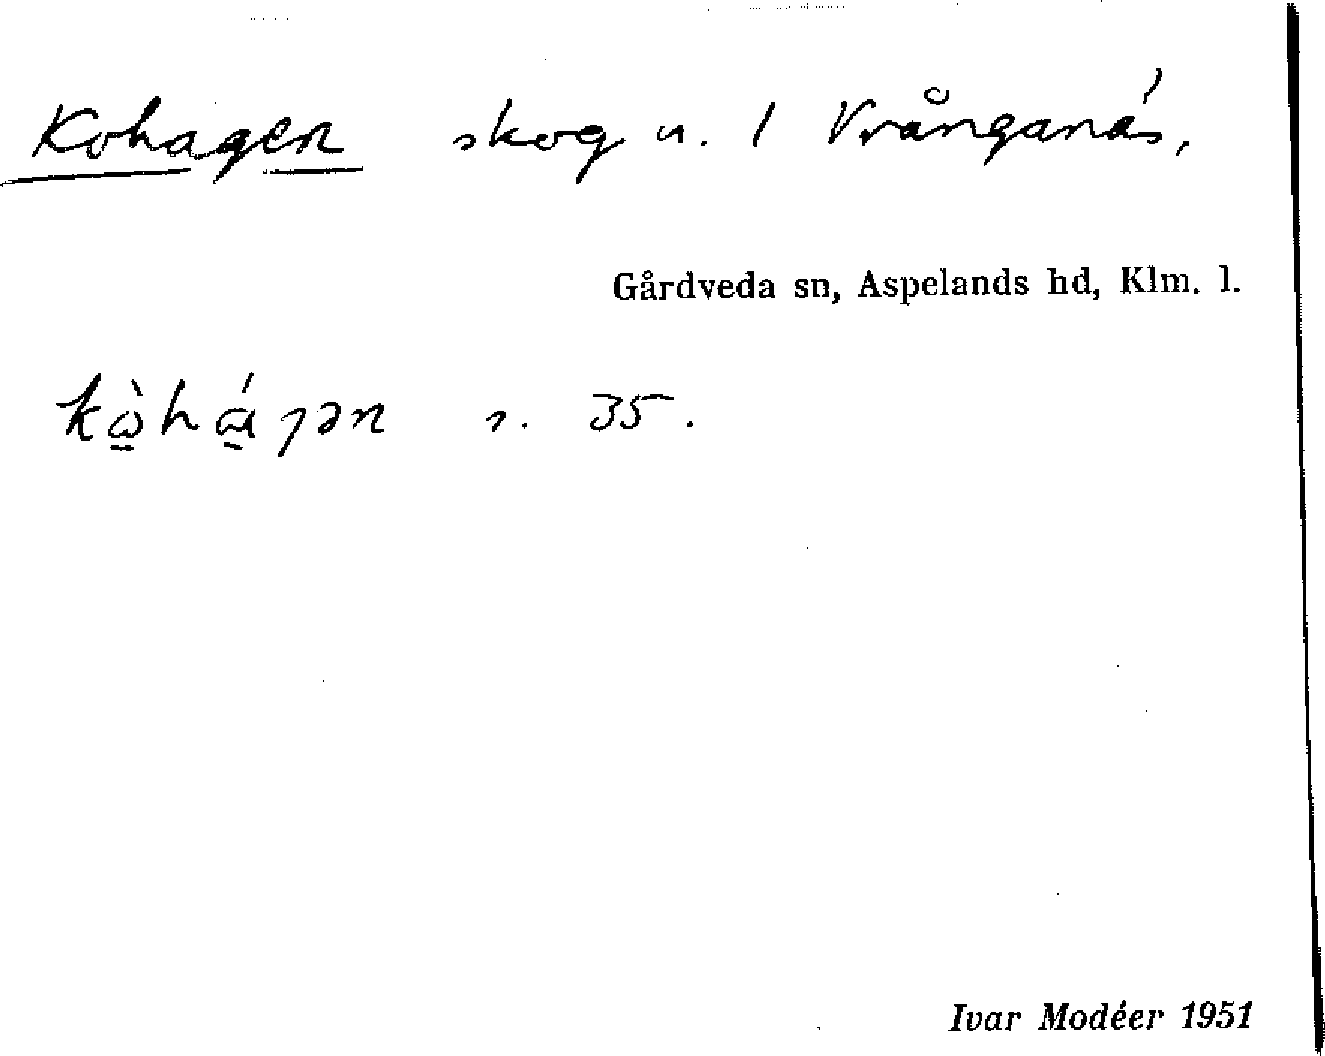 Kohagen skog u. 1 Vrånganäs,
Gårdveda sn, Aspelands hd, Klm. l.
s. 35.
Ivar Modéer 1951